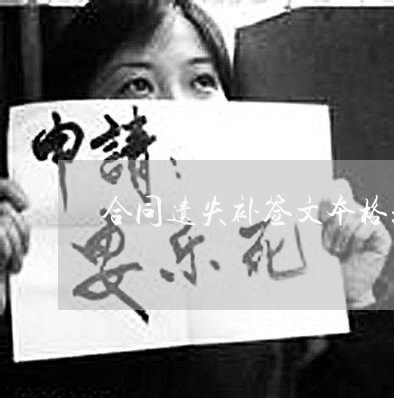 申請:
合同遗失补签文本格
安乐死